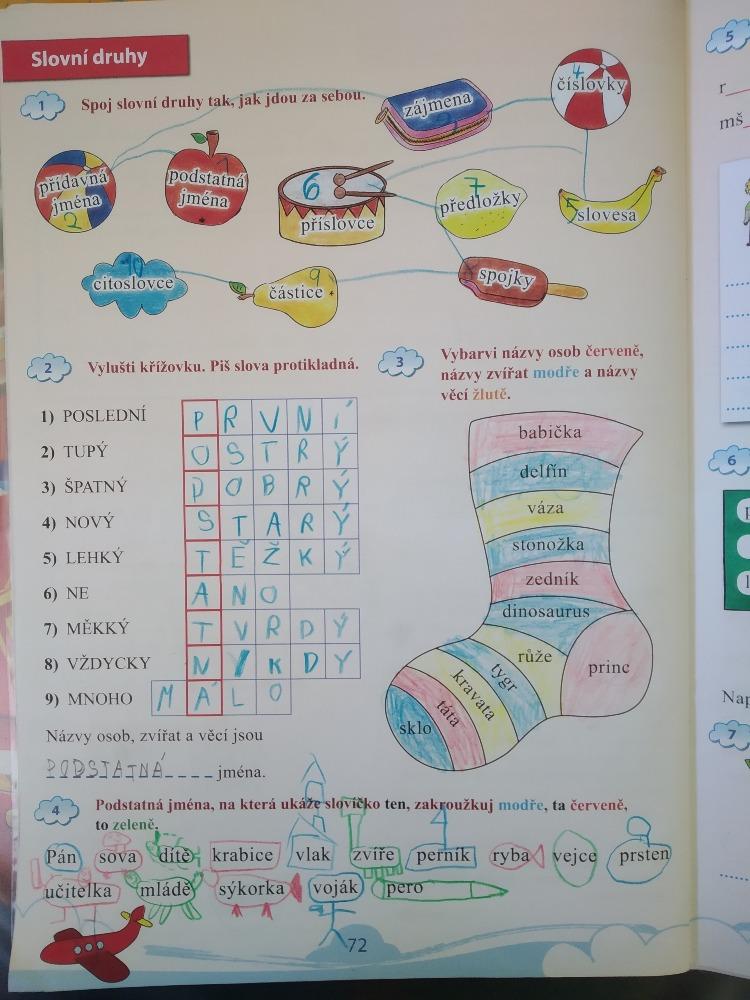 Slovní druhy
1 Spoj slovní druhy tak, jak jdou za sebou.
zájmena
číslovky 4
přídavná jména 2
podstatná jména 1
příslovce 6
předložky 7
slovesa 5
citoslovce 10
částice 9
spojky
2 Vylušti křížovku. Piš slova protikladná.
1) POSLEDNÍ PRVNÍ
2) TUPÝ OSTRÝ
3) ŠPATNÝ DOBRÝ
4) NOVÝ STARÝ
5) LEHKÝ TĚŽKÝ
6) NE ANO
7) MĚKKÝ TVRDÝ
8) VŽDYCKY NIKDY
9) MNOHO MÁLO
Názvy osob, zvířat a věcí jsou
PODSTATNÁ____ jména.
3 Vybarvi názvy osob červeně,
názvy zvířat modře a názvy
věcí žlutě.
babička
delfín
váza
stonožka
zedník
dinosaurus
růže
princ
tygr
kravata
táta
sklo
4 Podstatná jména, na která ukáže slovíčko ten, zakroužkuj modře, ta červeně,
to zeleně.
Pán sova dítě krabice vlak zvíře perník ryba vejce prsten
učitelka mládě sýkorka voják pero
72
5
r_
mš_
6
Nap
7